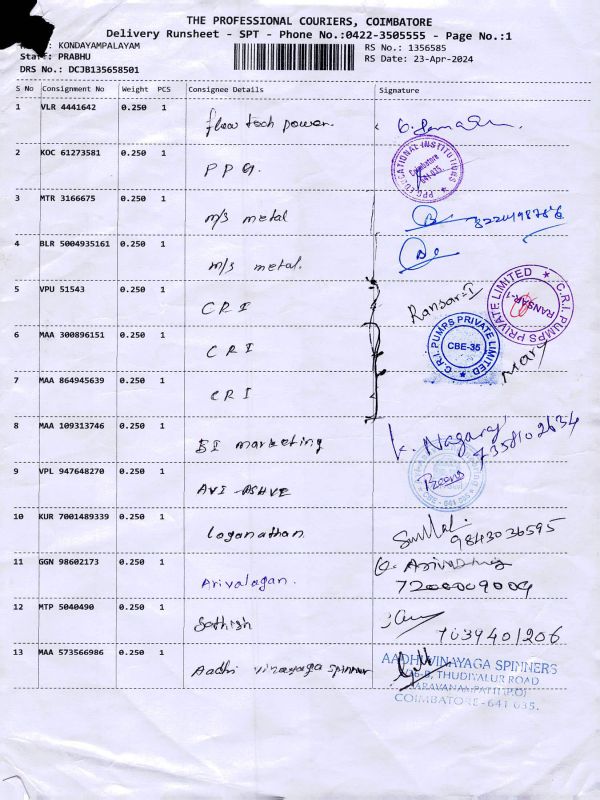 THE PROFESSIONAL COURIERS, COIMBATORE
Delivery Runsheet - SPT - Phone No.:0422-3505555 - Page No.:1
KONDAYAMPALAYAM RS No.: 1356585
Staff: PRABHU RS Date: 23-Apr-2024
DRS No.: DCJB135658501
S No Consignment No Weight PCS Consignee Details Signature
1 VLR 4441642 0.250 1 flow tech power.
2 KOC 61273581 0.250 1 PPG.
PPG EDUCATIONAL INSTITUTIONS
Coimbatore
641-035
3 MTR 3166675 0.250 1 m/s metal
4 BLR 5004935161 0.250 1 m/s metal.
5 VPU 51543 0.250 1 CRI Ransar-I
C.R.I. PUMPS PRIVATE LIMITED
RANSAR-1
6 MAA 300896151 0.250 1 CRI
C.R.I. PUMPS PRIVATE LIMITED
CBE-35
Mary
7 MAA 864945639 0.250 1 CRI
8 MAA 109313746 0.250 1 BI marketing K. Nagaraj
7358102634
9 VPL 947648270 0.250 1 AVI-ASHVE
10 KUR 7001489339 0.250 1 Loganathan
9843036595
11 GGN 98602173 0.250 1 Arivalagan.
7200009004
12 MTP 5040490 0.250 1 Sathish
13 MAA 573566986 0.250 1 Aadhi vinayaga spinner
AADHI VINAYAGA SPINNERS
THUDIYALUR ROAD
SARAVANAMPATTI (P.O)
COIMBATORE-641 035.